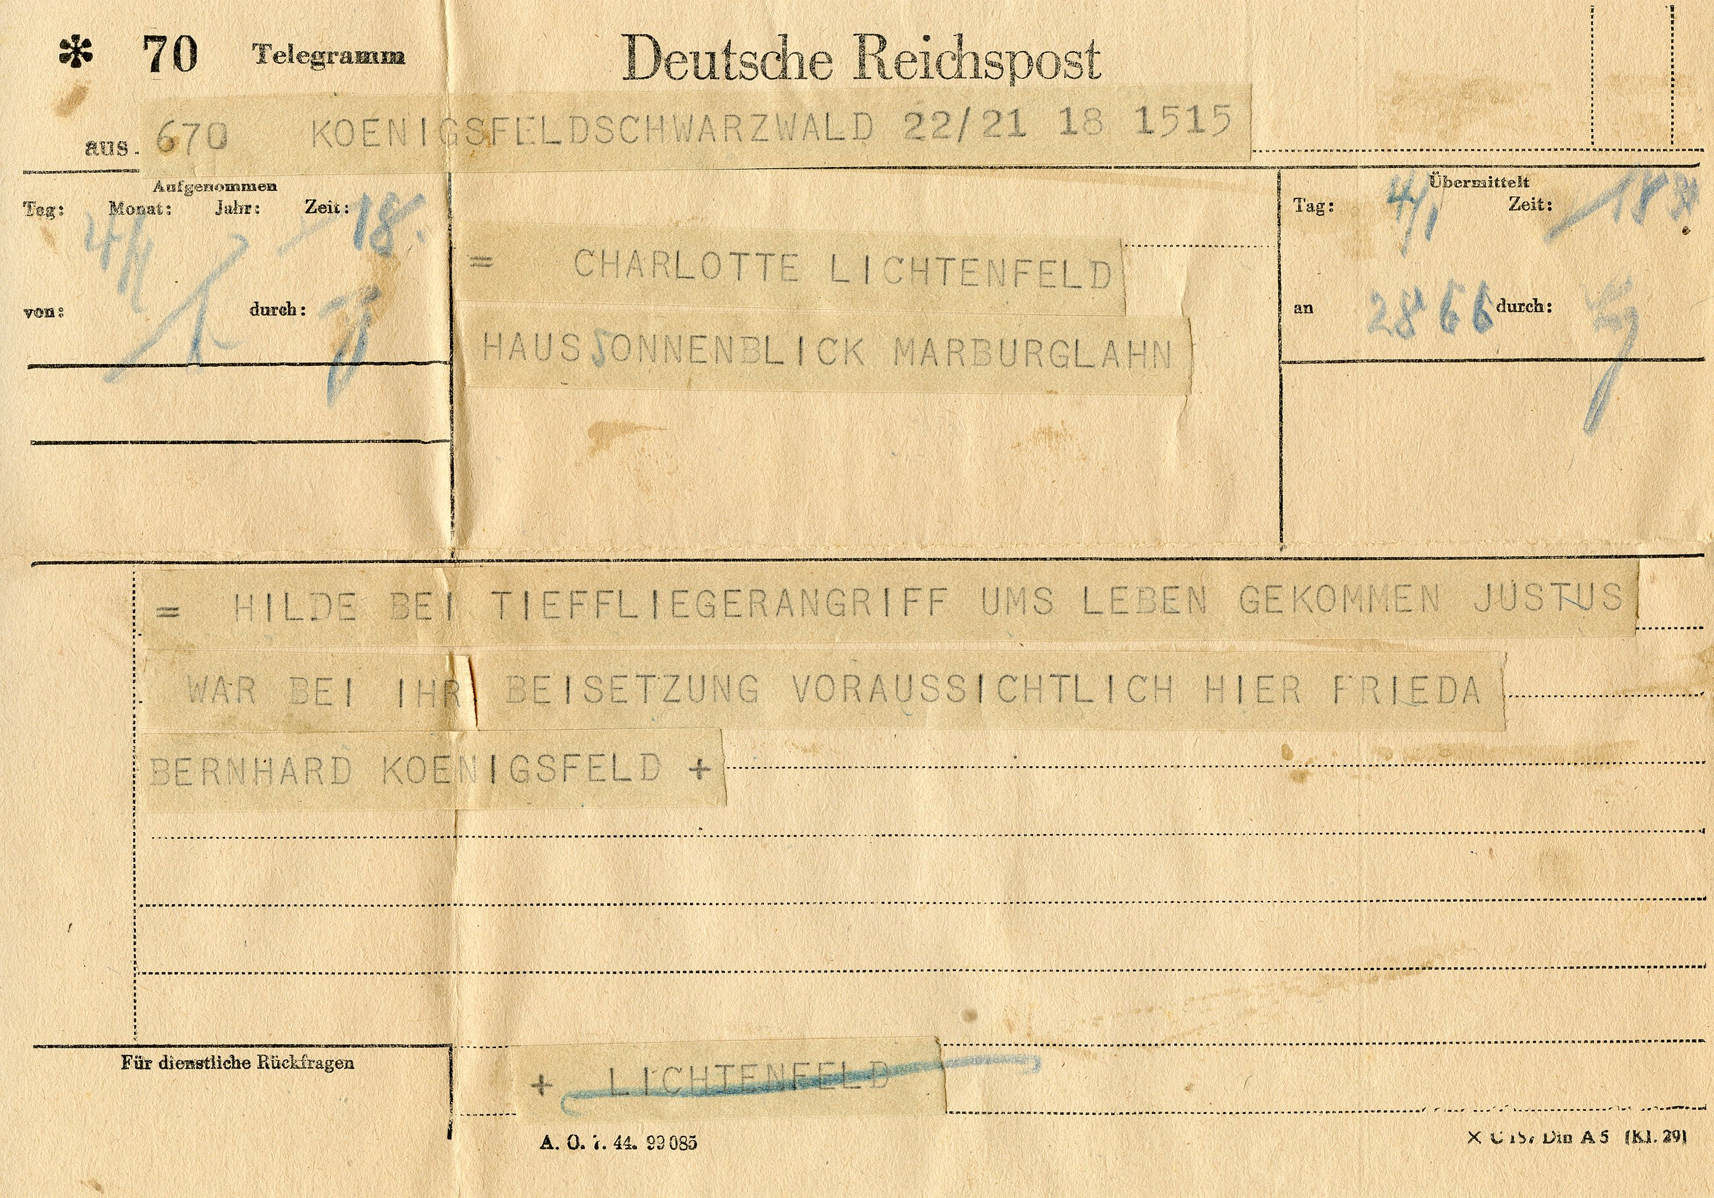 * 70 Telegramm Deutsche Reichspost
aus 670 KOENIGSFELDSCHWARZWALD 22/21 18 1515
Aufgenommen
Tag: Monat: Jahr: Zeit:
4/1 18.
von: durch:
= CHARLOTTE LICHTENFELD
HAUSSONNENBLICK MARBURGLAHN
Übermittelt
Tag: 4/1 Zeit:
an 2866 durch:
= HILDE BEI TIEFFLIEGERANGRIFF UMS LEBEN GEKOMMEN JUSTUS
WAR BEI IHR BEISETZUNG VORAUSSICHTLICH HIER FRIEDA
BERNHARD KOENIGSFELD +
Für dienstliche Rückfragen
+ LICHTENFELD
A. O. 44. 99085
Din A 5 (Kl. 29)